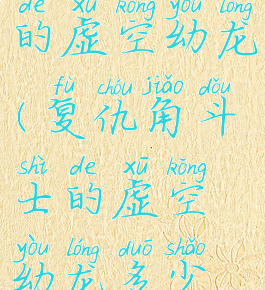 de xū kōng yòu lóng
的虚空幼龙
fù chóu jiǎo dǒu
(复仇角斗
shì de xū kōng
士的虚空
yòu lóng duō shǎo
幼龙多少